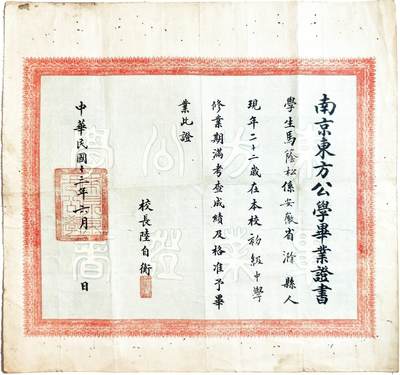 南京東方公學畢業證書
學生馬蔭松係安徽省 縣人
現年二十二歲在本校初級中學
修業期滿考查成績及格准予畢
業此證
校長陸自衡
中華民國十三年六月 日